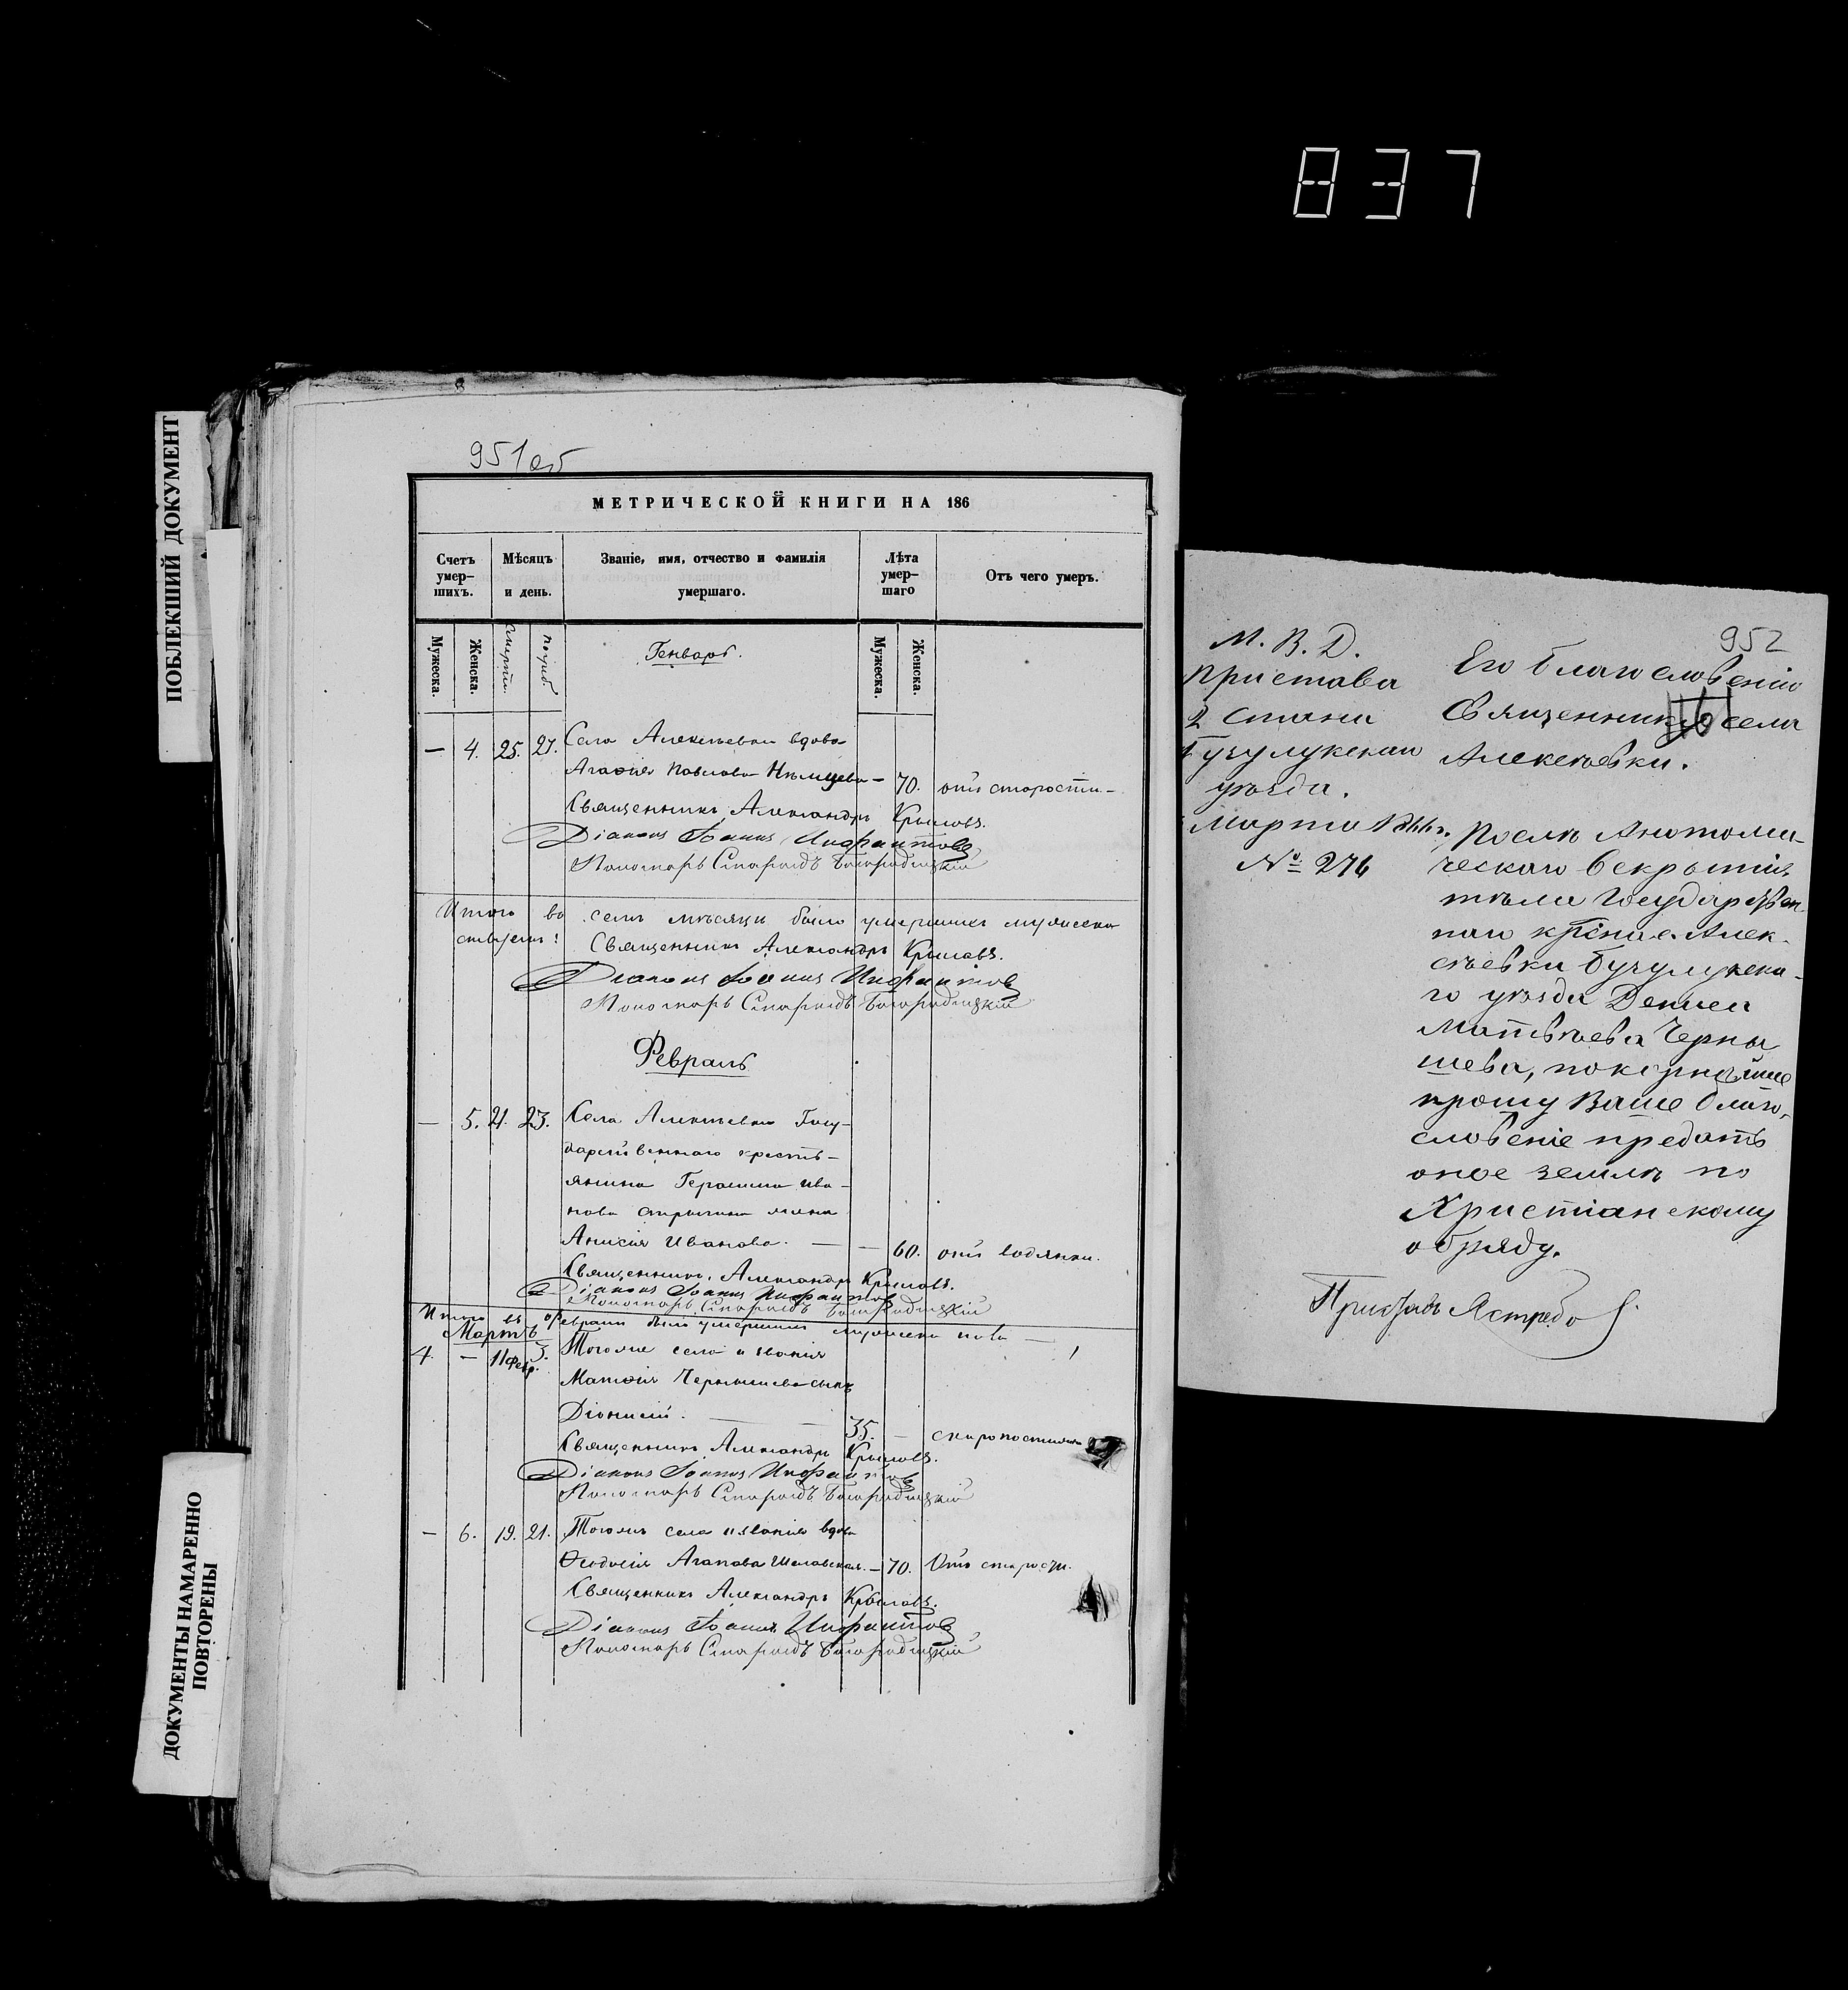 837
ПОБЛЕКШИЙ ДОКУМЕНТ
ДОКУМЕНТЫ НАМАРЕННО
ПОВТОРЕНЫ
951 об
МЕТРИЧЕСКОЙ КНИГИ НА 186
Счетъ умер-шихъ.
Мѣсяцъ и день.
Званіе, имя, отчество и фамилія умершаго.
Лѣта умер-шаго
Отъ чего умеръ.
Мужеска. Женска. Смерти. Погреб. Генварь. Мужеска. Женска.
— 4. 25. 27. Села Алексѣевки вдова
Агафія Павлова Нѣмцева — 70. отъ старости —
Священникъ Александръ Крыловъ.
Діаконъ Іоаннъ Инфантовъ
Пономарь Богородицкій
Итого въ семъ мѣсяцѣ было умершихъ мужеска
Священникъ Александръ Крыловъ.
Діаконъ Іоаннъ Инфантовъ
Пономарь Богородицкій
Февраль
— 5. 21. 23. Села Алексѣевки Госу-
дарственнаго кресть-
янина Герасима Ива-
нова жена
Анисія Иванова. — — 60. отъ водянки.
Священникъ Александръ Крыловъ.
Діаконъ Іоаннъ Инфантовъ
Пономарь Богородицкій
Итого въ февралѣ было умершихъ мужеска пола — 1
Мартъ
4. — 11 февр. 3. Тогоже села и званія
Матфія Чернышева сынъ
Діонисій. — — 35. — скоропостижно
Священникъ Александръ Крыловъ.
Діаконъ Іоаннъ Инфантовъ
Пономарь Богородицкій
— 6. 19. 21. Тогожъ села и званія вдова
Феодосія Агапова — 70. Отъ старости.
Священникъ Александръ Крыловъ.
Діаконъ Іоаннъ Инфантовъ
Пономарь Богородицкій
952
М. В. Д.
Пристава
2 Стана
Бузулукскаго
уѣзда.
Марта
№ 276
Его благословенію
Священнику села
Алексѣевки.
Послѣ Анатоми-
ческаго вскрытія
тѣла Государствен-
наго кр-на с. Алек-
сѣевки Бузулукска-
го уѣзда Дениса
Матвѣева Черны
шева, покорнѣйше
прошу Ваше благо-
словеніе предать
оное землѣ по
Христіанскому
обряду.
Приставъ Ястребов